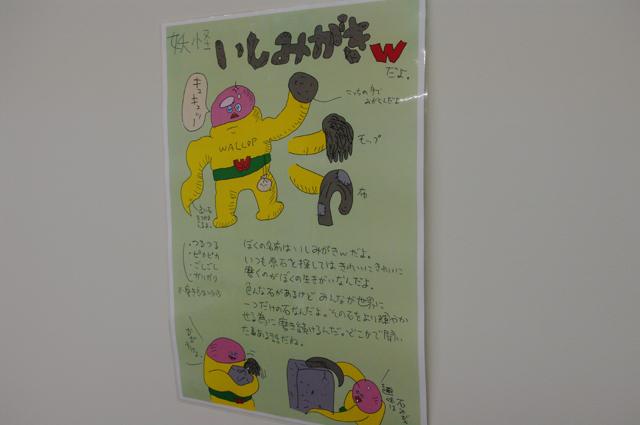 妖怪
いしみがき W
だよ。
キュッ
キュッ
こっちの手で
みがくんだよ
WALLOP
W
モップ
布
・つるつる
・ピカピカ
・ごしごし
ぼくの名前はいしみがきWだよ。
いつも原石を探してはきれいにきれいに
磨くのがぼくの生きがいなんだよ。
色んな石があるけどみんなが世界に
一つだけの石なんだよ。その石をより輝やか
せる為に磨き続けるんだ。どこかで聞い
た事ある話だね。
趣味は